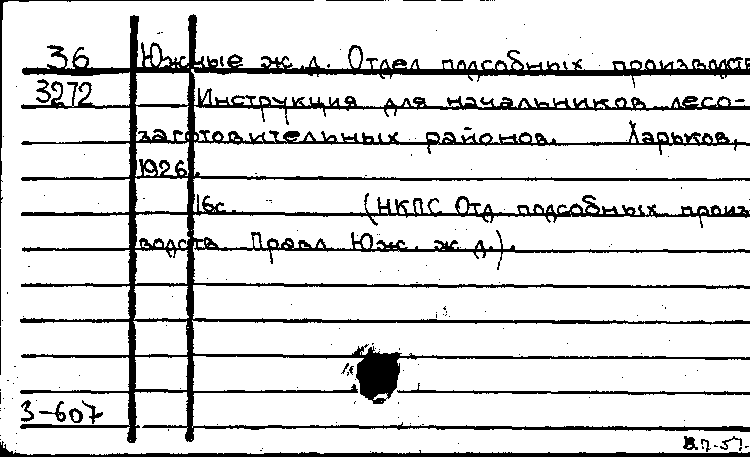 36 Южные ж.д. Отдел подсобных производств
3272 Инструкция для начальников лесо-
заготовительных районов. Харьков,
1926.
16с. (НКПС Отд подсобных произ
водств. Правл. Юж. ж.д.).
3-607